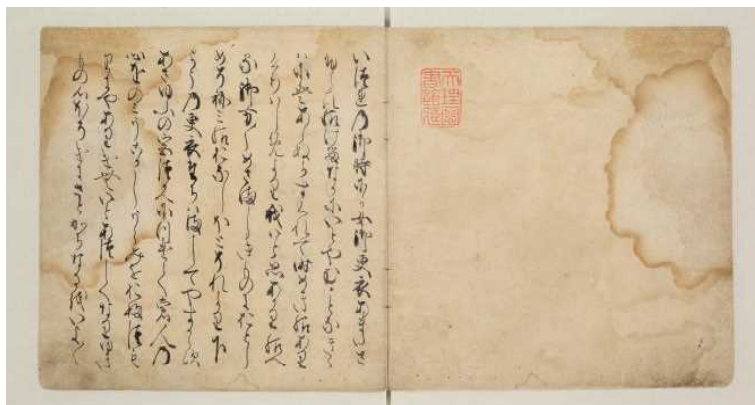 いつれの御時にか女御更衣あまたさ
ふらひ給けるなかにいとやむことなきき
はにはあらぬかすくれて時めき給あり
けりはしめより我はと思あかり給へ
る御かた〱めさましきものにおとし
めそねみ給おなしほとそれより下
らうの更衣たちはましてやすからす
あさゆふの宮つかへにつけても人の
心をのみうこかしうらみをおふつも
りにやありけむいとあつしくなりゆき
もの心ほそけにさとかちなるをいよ〱